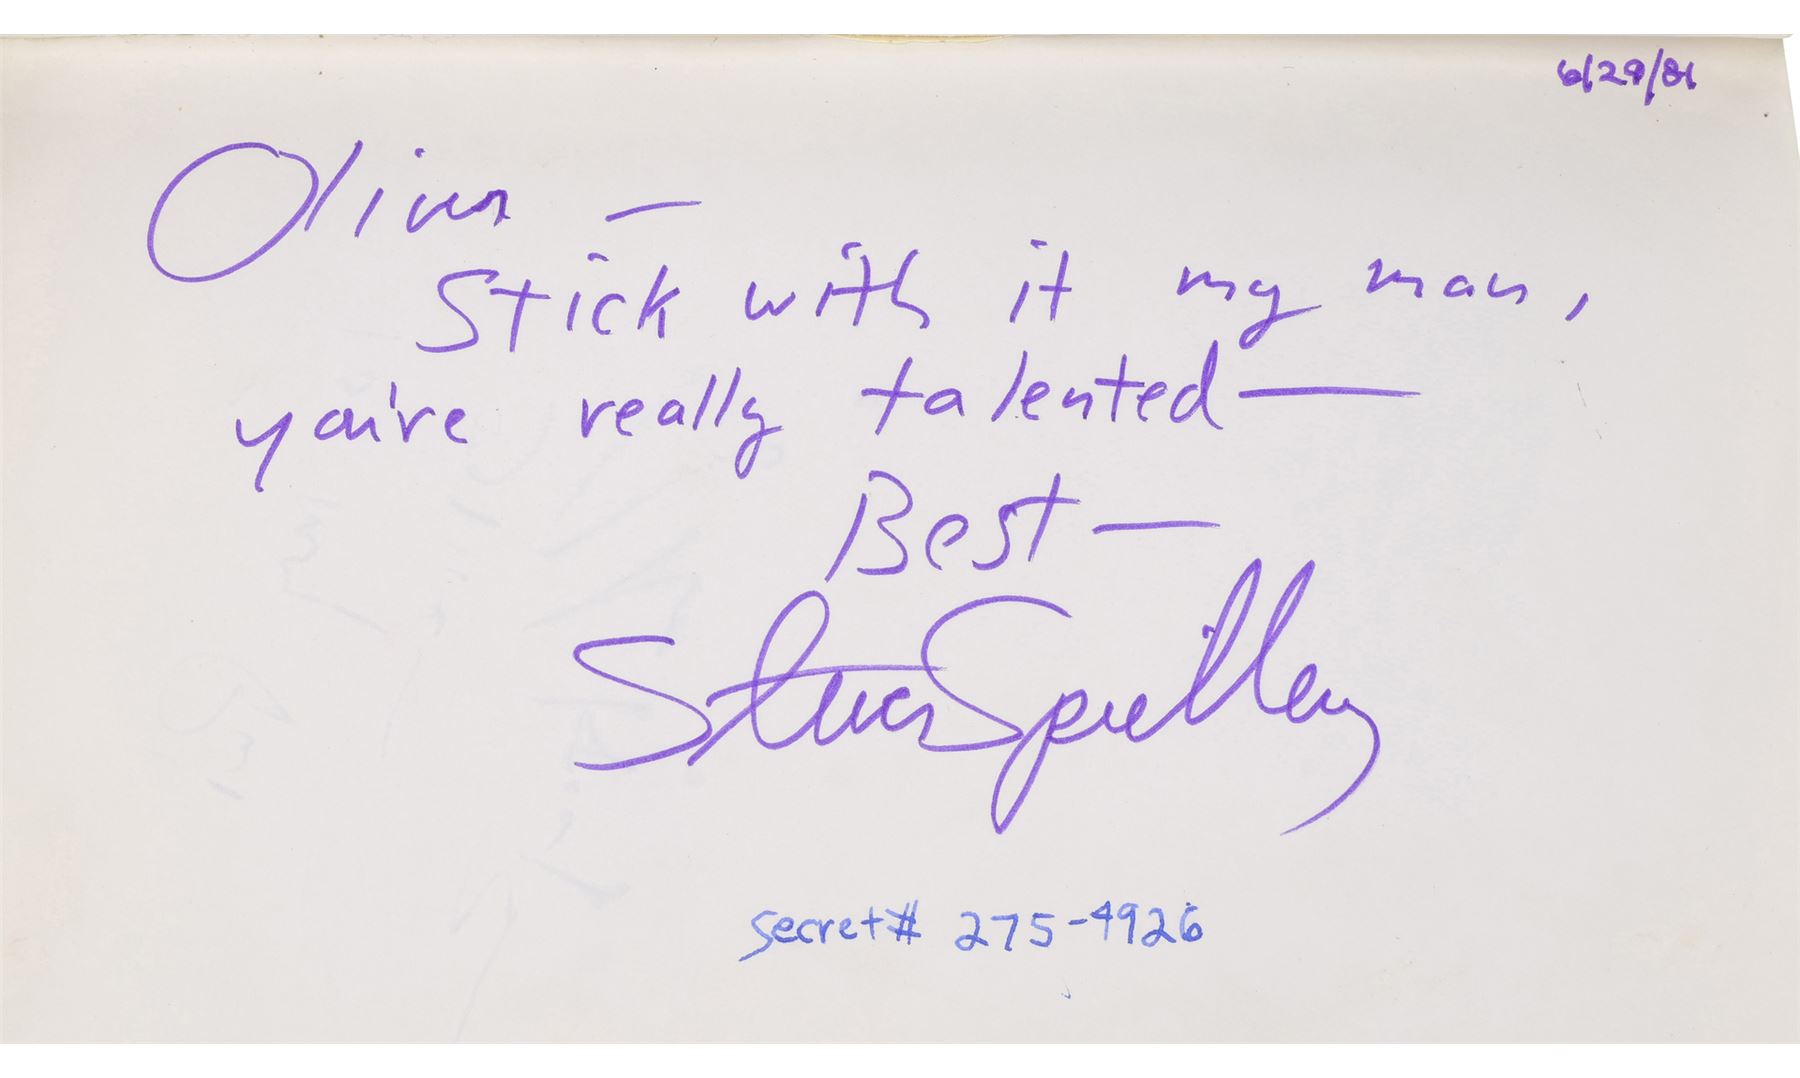 6/29/81
Oliver —
Stick with it my man,
you're really talented —
Best —
Steven Spielberg
secret# 275-4926